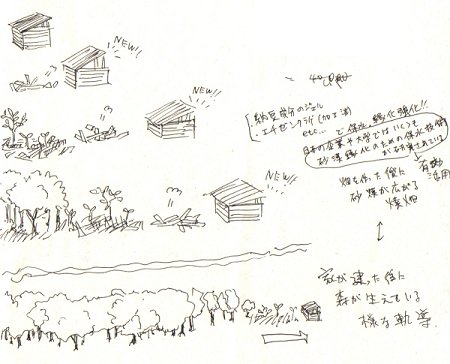 NEW!!
NEW!!
NEW!!
・納豆成分のジェル
・エチゼンクラゲ(加工済)
etc... で保水、緑化強化!!
日本の企業や大学ではいくつも
砂漠緑化のための保水技術
が研究されている
有効
活用
畑を作った後に
砂漠が広がる
焼畑
↕
家が建った後に
森が生えている
様な軌導